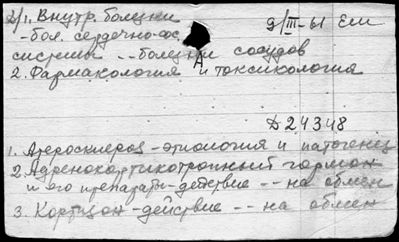 2/1. Внутр. болезни 9/III-61 Еш
-бол. сердечно-сос
системы -- болезни сосудов
2. Фармакология и токсикология
Д24348
1. Атеросклероз - этиология и патогенез
2. Адренокортикотропный гормон
и его препараты - действие -- на обмен
3. Кортизон - действие -- на обмен